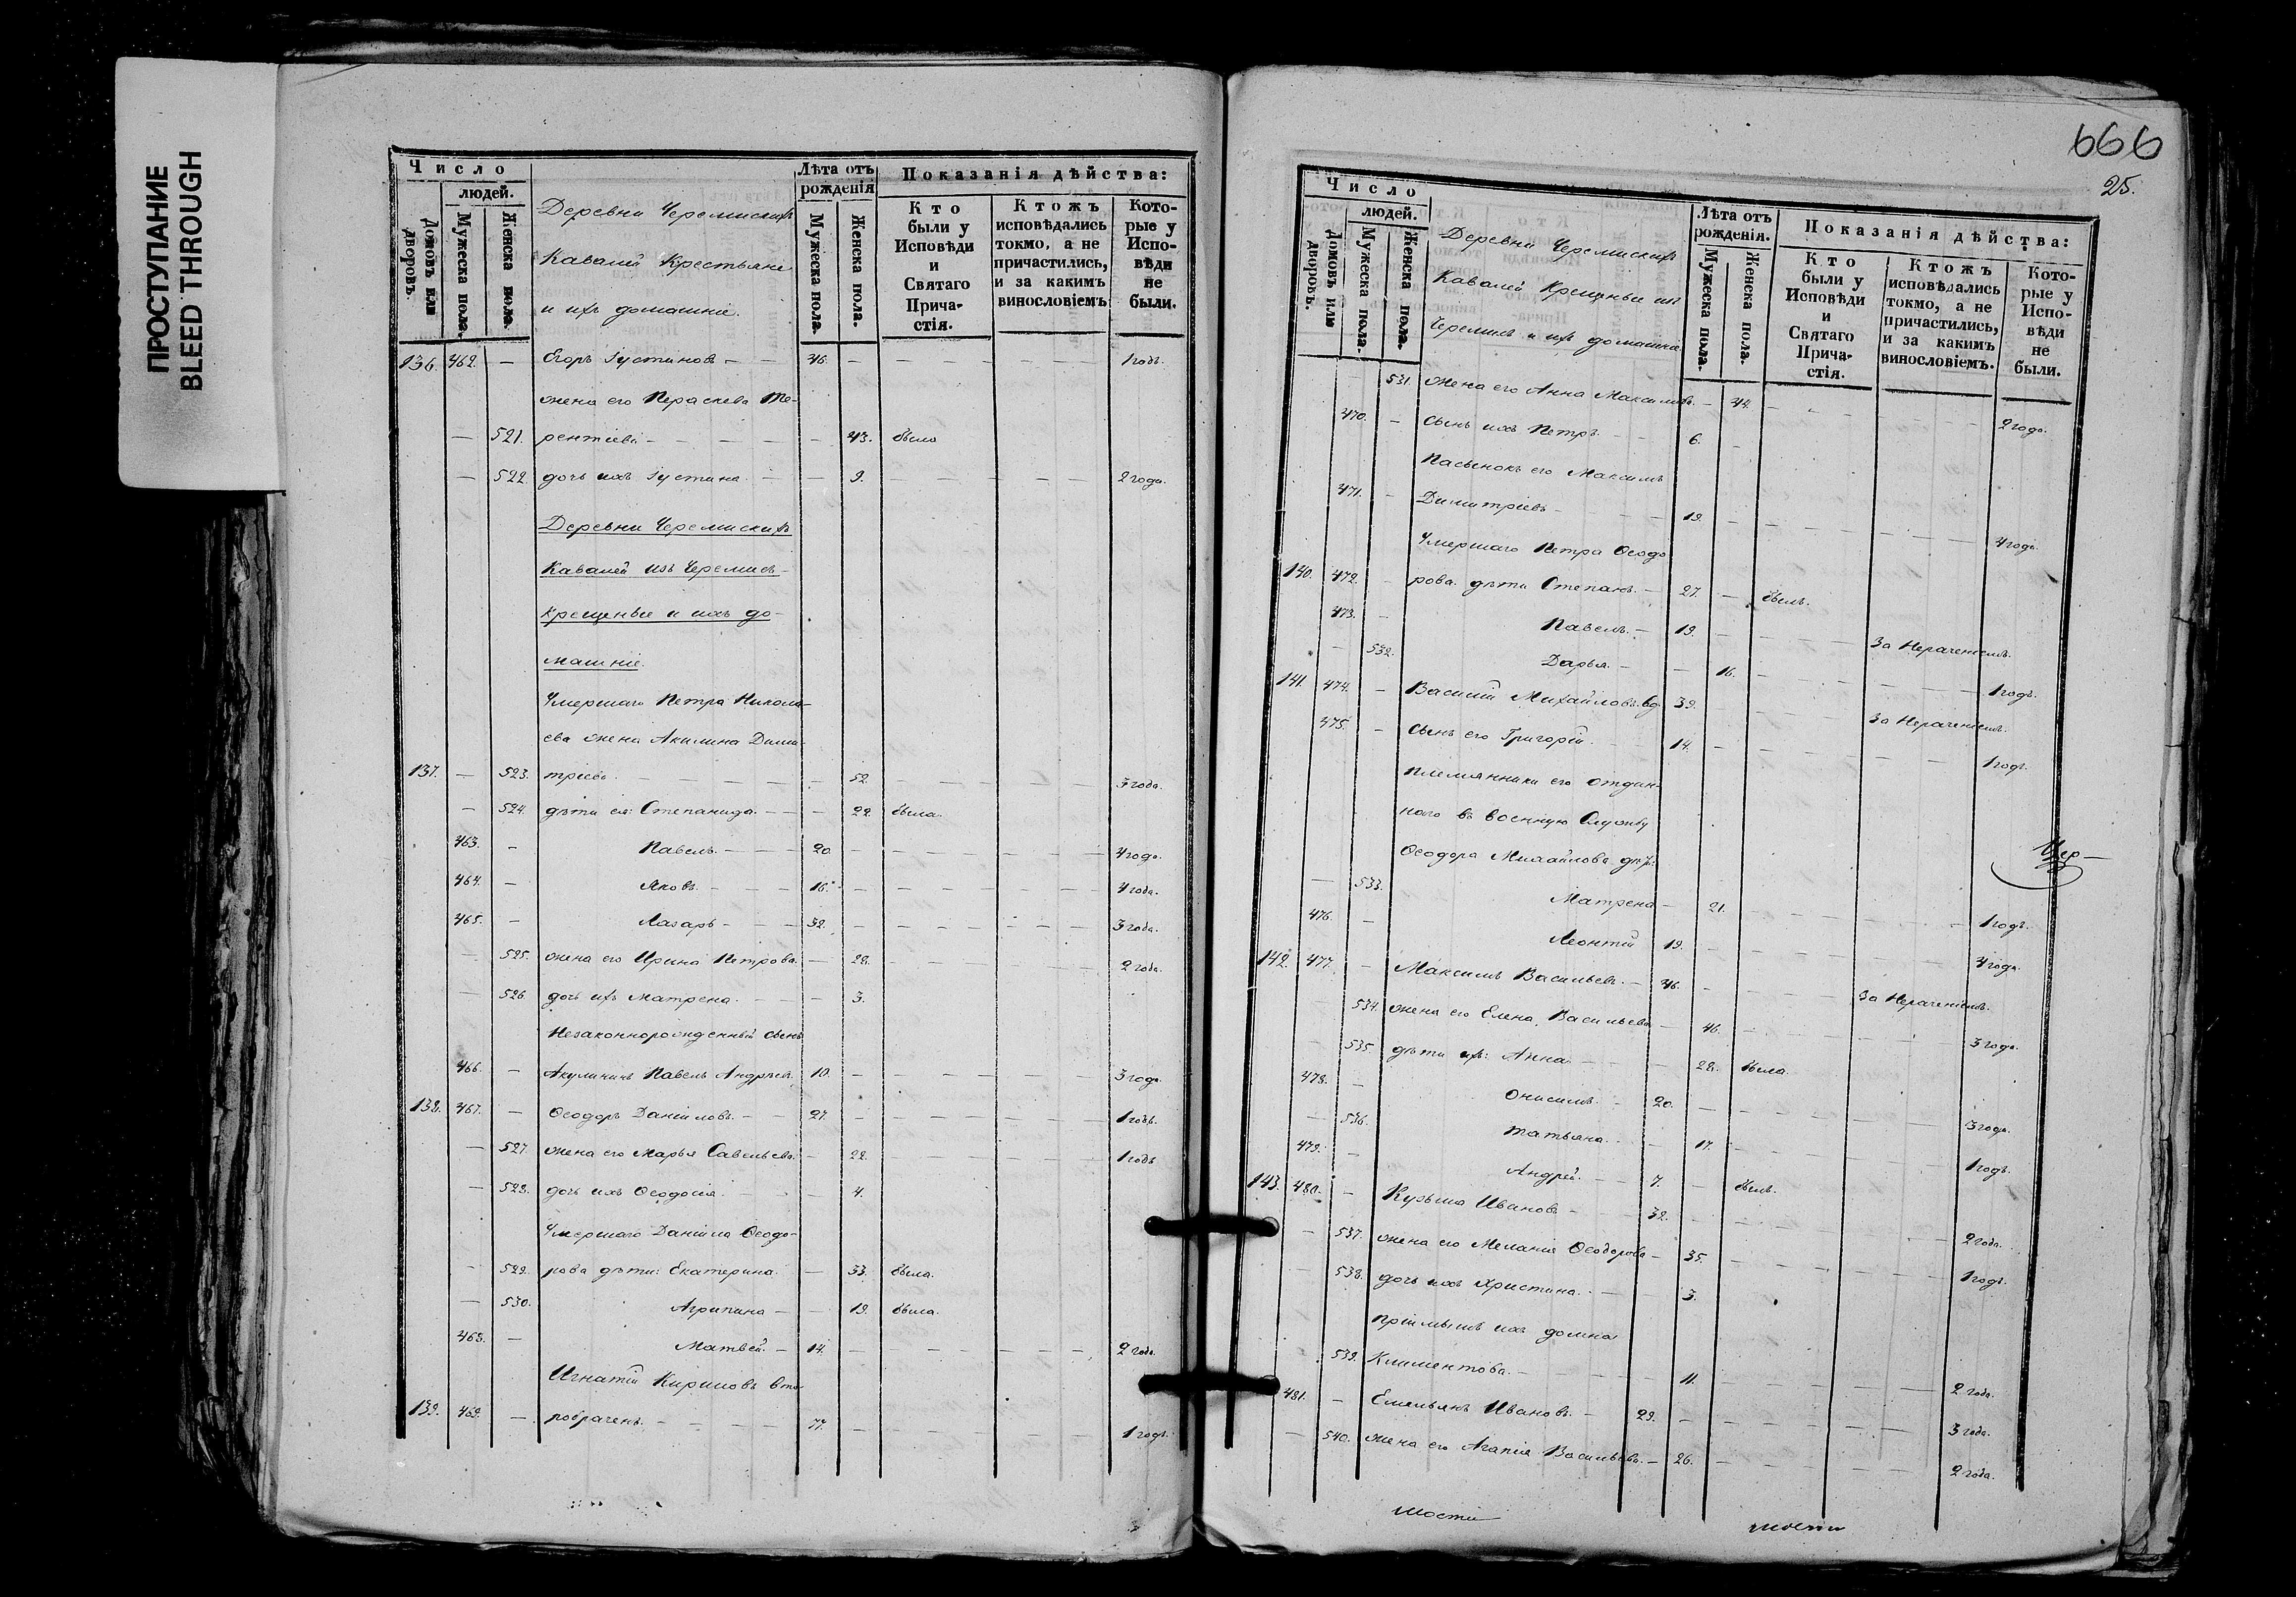 ПРОСТУПАНИЕ
BLEED THROUGH
Число
людей.
Домовъ или дворовъ.
Мужеска пола.
Женска пола.
Деревни Черемискихъ
Кавалей Крестьяне
и ихъ домашніе.
Лѣта отъ рожденія
Мужеска пола.
Женска пола.
Показанія дѣйства:
Кто были у Исповѣди и Святаго Причастія.
Ктожъ исповѣдались токмо, а не причастились, и за какимъ винословіемъ
Которые у Исповѣди не были.
136. 462. — Егоръ Іустиновъ — 46. — 1 годъ.
жена его Параскева Те-
— 521. рентіева — 43. была
— 522. дочь ихъ Іустина — 9. — 2 года.
Деревни Черемискихъ
Кавалей изъ Черемисъ
крещеные и ихъ до-
машніе.
Умершаго Петра Никола-
ева жена Акилина Дими-
137. — 523. тріева — 52. — 3 года.
— 524. дѣти ея: Степанида — 22. была.
463. — Павелъ — 20. — 4 года.
464. — Яковъ — 16. — 4 года.
465. — Лазарь — 32. — 3 года.
— 525. жена его Ирина Петрова — 28. — 2 года.
— 526. дочь ихъ Матрена — 3.
Незаконнорожденный сынъ
466. — Акулининъ Павелъ Андреевъ 10. — 3 года.
138. 467. — Ѳеодоръ Даниловъ — 27. — 1 годъ.
— 527. жена его Марья Савельева — 22. — 1 годъ
— 528. дочь ихъ Ѳеодосія — 4.
Умершаго Даніила Ѳеодо-
— 529. рова дѣти: Екатерина — 33. была.
— 530. Агрипина — 19. была.
468. — Матвей — 14. — 2 года.
Игнатій Кириловъ Вто-
139. 469. — робраченъ — 77. — 1 годъ.
666
25.
Число
людей.
Домовъ или дворовъ.
Мужеска пола.
Женска пола.
Деревни Черемискихъ
Кавалей Крещеные изъ
Черемисъ и ихъ домашніе
Лѣта отъ рожденія.
Мужеска пола.
Женска пола.
Показанія дѣйства:
Кто были у Исповѣди и Святаго Причастія.
Ктожъ исповѣдались токмо, а не причастились, и за какимъ винословіемъ.
Которые у Исповѣди не были.
— 531. жена его Анна Максимова — 44. — 2 года.
470. — сынъ ихъ Петръ — 6. —
Пасынокъ его Максимъ
471. — Димитріевъ — 19. — 4 года.
Умершаго Петра Ѳеодо-
140. 472. — рова дѣти Степанъ — 27. — былъ.
473. — Павелъ — 19. — За Нераченіемъ.
— 532. Дарья — 16. — 1 годъ.
141. 474. — Василій Михайловъ вд. 39. — За Нераченіемъ.
475. — сынъ его Григорій — 14. — 1 годъ.
племянники его отдан-
наго въ военную Службу
Ѳеодора Михайлова дѣти:
— 533. Матрена — 21. — 1 годъ.
476. — Леонтій 19. — 4 года.
142. 477. — Максимъ Васильевъ — 46. — За Нераченіемъ.
— 534. жена его Елена Васильева — 46. — 3 года.
— 535. дѣти ихъ: Анна — 28. была.
478. — Онисимъ — 20. — 3 года.
— 536. Татьяна — 17. — 1 годъ.
479. — Андрей — 7. — былъ.
143. 480. — Кузьма Ивановъ — 32. — 2 года.
— 537. жена его Меланія Ѳеодорова — 35. — 1 годъ.
— 538. дочь ихъ Христина — 3.
пріимышъ ихъ домна
539. Климентова — 11. — 2 года.
481. — Емельянъ Ивановъ — 29. — 3 года.
— 540. жена его Агапія Васильева — 26. — 2 года.
Цер—